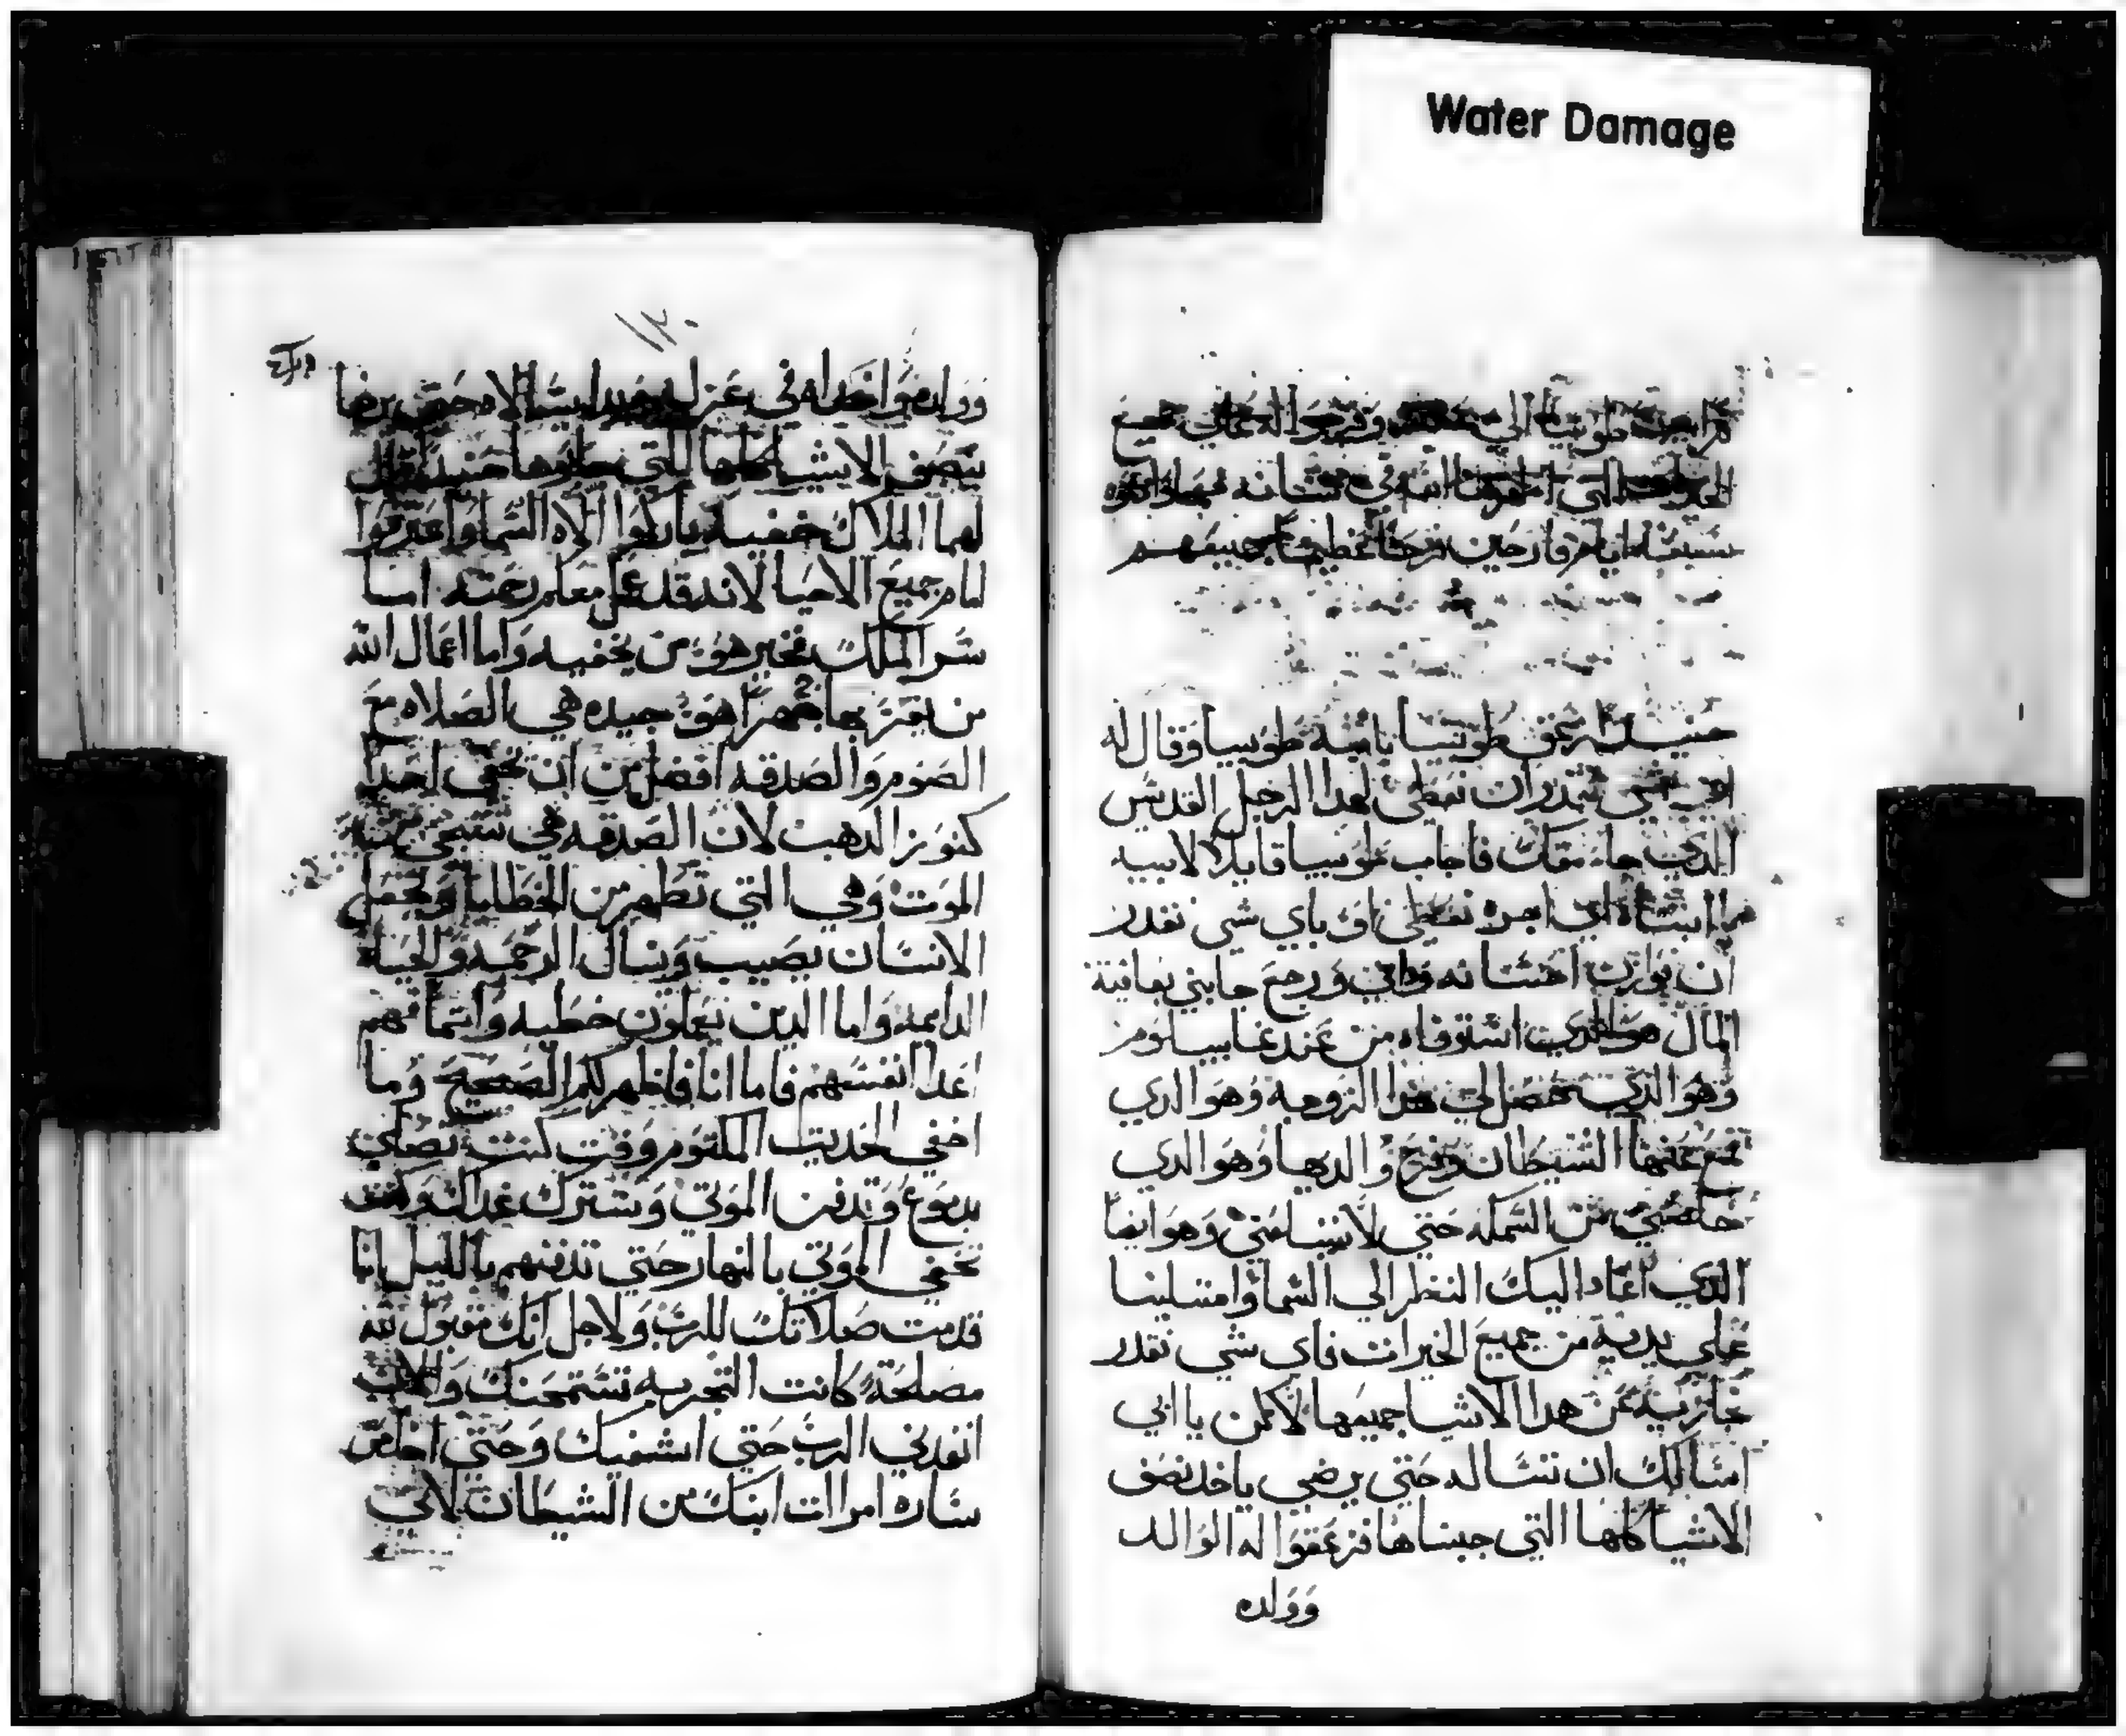 Water Damage
طوبيا الي وفرحوا
التي في
سبعة ايام فارحين فرحا عظيما جميعهم
حينيد طوبيا بابنه طوبيا وقال له
اي شي نقدر ان نعطي لهدا الرجل القديس
الدي جاء معك فاجاب طوبيا قايلا لابيه
يا ابتاه اي اجره نعطي او باي شي نقدر
ان نوازن احسانه وداني ورجع جابني بعافية
المال هو الدي استوفاه من عند غابيلوس
وهو الدي حصل لي هدا الزوجة وهو الدي
منع عنها الشيطان وفرح والديها وهو الدي
خلصني من السمكه حتي لا تبتلعني وهو ايضا
الدي اعاد اليك النظر الي السما وامتلينا
علي يديه من جميع الخيرات فاي شي نقدر
نجازيه عن هدا الاشيا جميعها لاكن يا ابي
اسالك ان تساله حتي يرضي ياخد نصف
الاشيا كلها التي جبناها فزعقوا له الوالد
وولده
١٣٠
وولده واخداه في عزله حتي يرضا
بنصف الاشيا كلها التي جابوها حينيد قال
لهما الملاك خفيه باركوا الاه السما واعترفوا
امام جميع الاحيا لانه قد عمل معكم رحمته اما
سر الملك فخير هو من يخفيه واما اعمال الله
من يعتز بها جهرا هو جيده هي الصلاه مع
الصوم والصدقه افضل من ان تخفي احدا
كنوز الدهب لان الصدقه هي تنجي من
الموت وهي التي تطهر من الخطايا وتجعل
الانسان يصيب وينال الرحمه والحياه
الدايمه واما الدين يعملون خطيه واتما فهم
اعدا انفسهم فاما انا فاظهر لكم الصحيح وما
اخفي الحديت المكتوم وقت كنت تصلي
بدموع وتدفن الموتي وتترك غداك وكنت
تخفي الموتي بالنهار حتي تدفنهم بالليل انا
قدمت صلاتك للرب ولاجل انك مقبول لله
مصلحة كانت التجربه تستمحنك والان
انفدني الرب حتي اشفيك وحتي اخلص
ساره امرات ابنك من الشيطان لاني